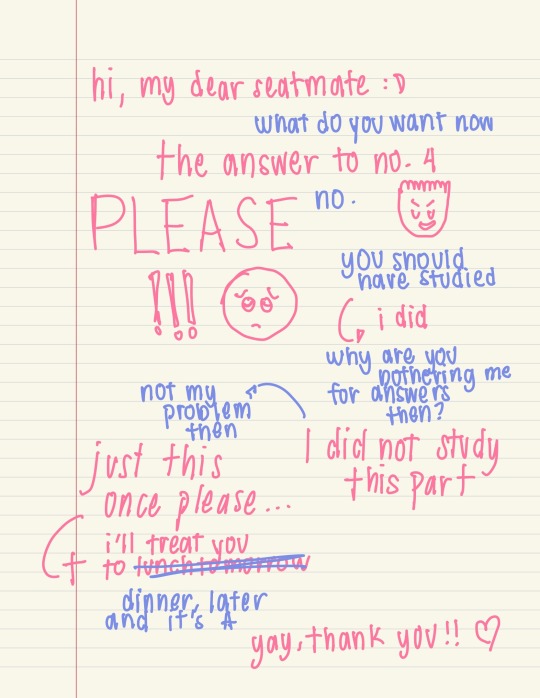 hi, my dear seatmate :D
what do you want now
the answer to no. 4
PLEASE
no.
!!!
you should
have studied
i did
why are you
bothering me
for answers
then?
I did not study
this part
not my
problem
then
just this
once please...
+ i'll treat you
to lunch tomorrow
dinner, later
and it's A
yay, thank you!! ♡